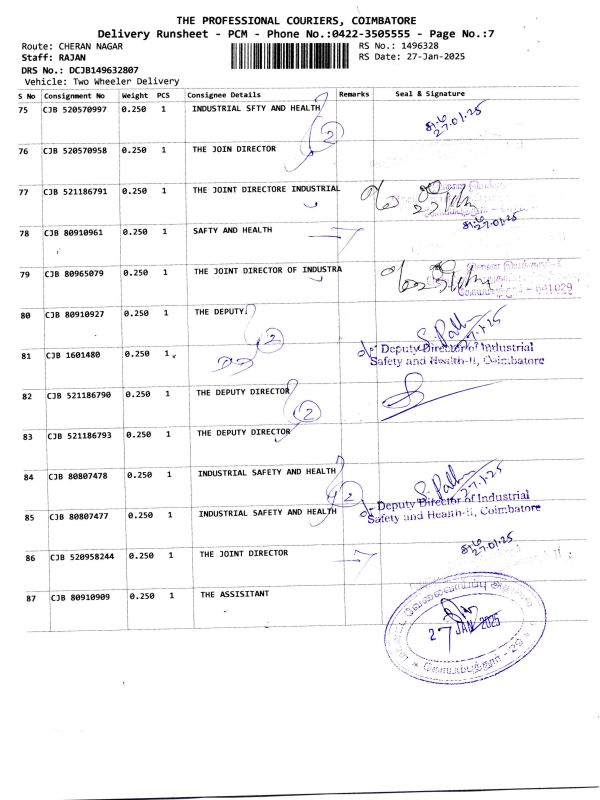 THE PROFESSIONAL COURIERS, COIMBATORE
Delivery Runsheet - PCM - Phone No.:0422-3505555 - Page No.:7
Route: CHERAN NAGAR
RS No.: 1496328
Staff: RAJAN
RS Date: 27-Jan-2025
DRS No.: DCJB149632807
Vehicle: Two Wheeler Delivery
S No Consignment No Weight PCS Consignee Details Remarks Seal & Signature
75 CJB 520570997 0.250 1 INDUSTRIAL SFTY AND HEALTH
27.01.25
2
76 CJB 520570958 0.250 1 THE JOIN DIRECTOR
77 CJB 521186791 0.250 1 THE JOINT DIRECTORE INDUSTRIAL
78 CJB 80910961 0.250 1 SAFTY AND HEALTH
27.01.25
79 CJB 80965079 0.250 1 THE JOINT DIRECTOR OF INDUSTRA
641029
80 CJB 80910927 0.250 1 THE DEPUTY.
2
81 CJB 1601480 0.250 1
Deputy Director of Industrial
Safety and Health-II, Coimbatore
82 CJB 521186790 0.250 1 THE DEPUTY DIRECTOR
2
83 CJB 521186793 0.250 1 THE DEPUTY DIRECTOR
84 CJB 80807478 0.250 1 INDUSTRIAL SAFETY AND HEALTH
2
85 CJB 80807477 0.250 1 INDUSTRIAL SAFETY AND HEALTH
Deputy Director of Industrial
Safety and Health-II, Coimbatore
86 CJB 520958244 0.250 1 THE JOINT DIRECTOR
27.01.25
87 CJB 80910909 0.250 1 THE ASSISITANT
27 JAN 2025